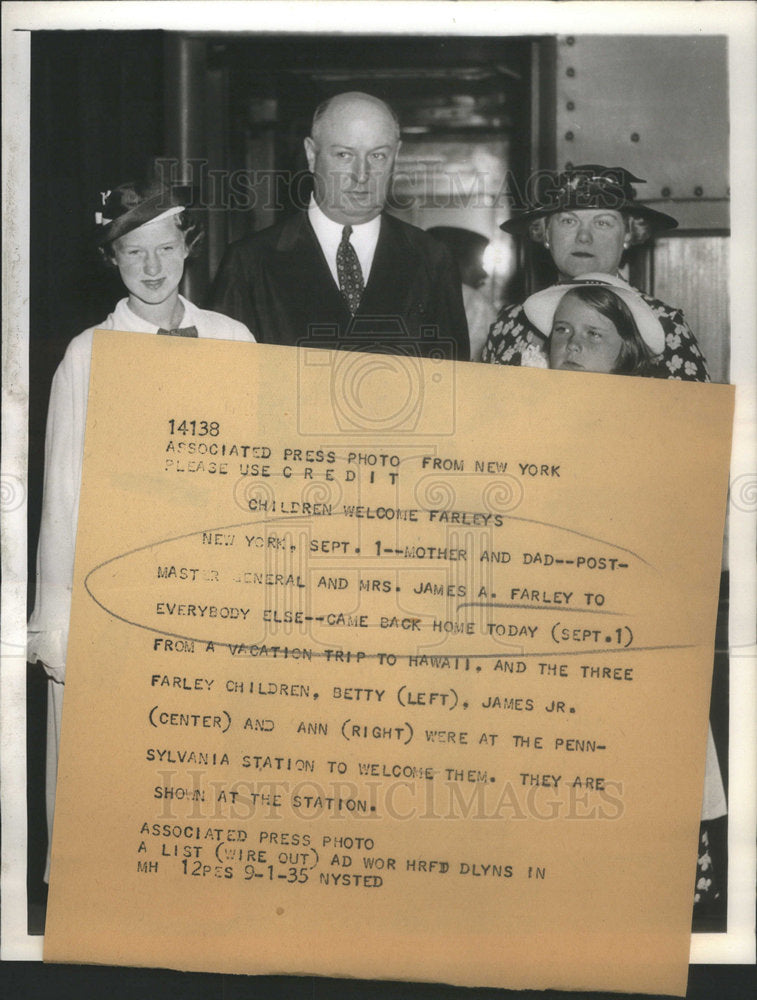 14138
ASSOCIATED PRESS PHOTO FROM NEW YORK
PLEASE USE C R E D I T
CHILDREN WELCOME FARLEYS
NEW YORK, SEPT. 1--MOTHER AND DAD--POST-
MASTER GENERAL AND MRS. JAMES A. FARLEY TO
EVERYBODY ELSE--CAME BACK HOME TODAY (SEPT.1)
FROM A VACATION TRIP TO HAWAII, AND THE THREE
FARLEY CHILDREN, BETTY (LEFT), JAMES JR.
(CENTER) AND ANN (RIGHT) WERE AT THE PENN-
SYLVANIA STATION TO WELCOME THEM. THEY ARE
SHOWN AT THE STATION.
ASSOCIATED PRESS PHOTO
A LIST (WIRE OUT) AD WOR HRFD DLYNS IN
MH 12PES 9-1-35 NYSTED
HISTORIC IMAGES
HISTORIC IMAGES